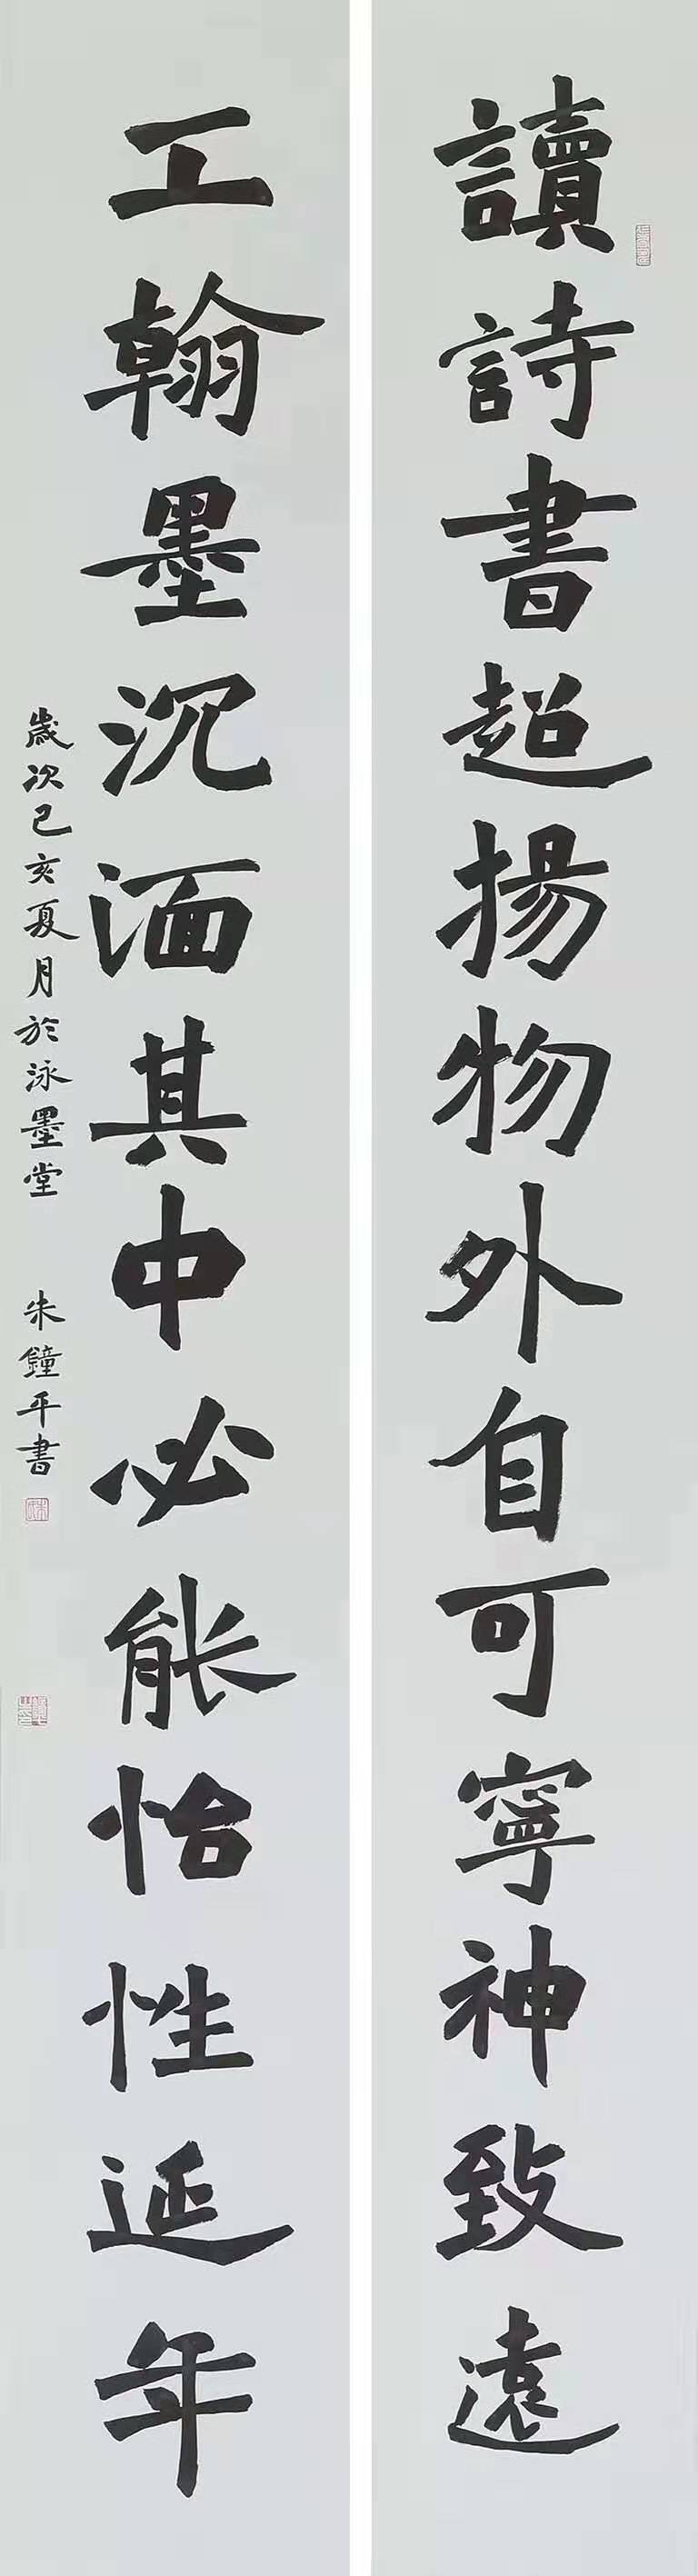 讀詩書超揚物外自可寧神致遠
工翰墨沉湎其中必能怡性延年
歲次己亥夏月於泳墨堂 朱鐘平書